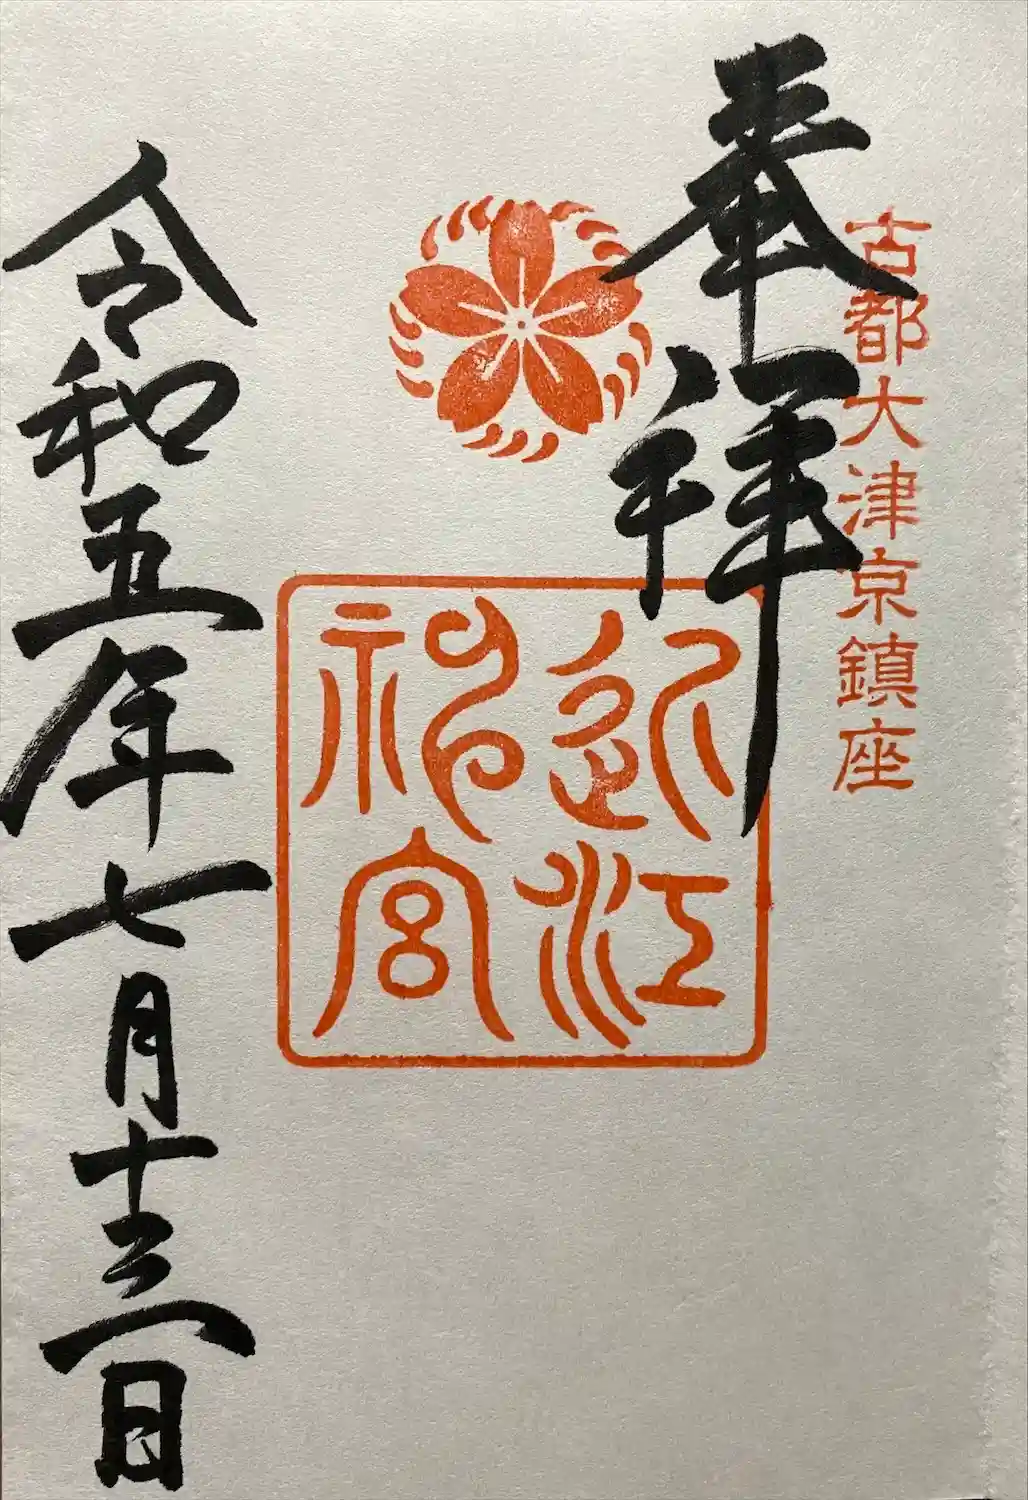 古都大津京鎮座
奉拝
近江
神宮
令和五年七月十三日